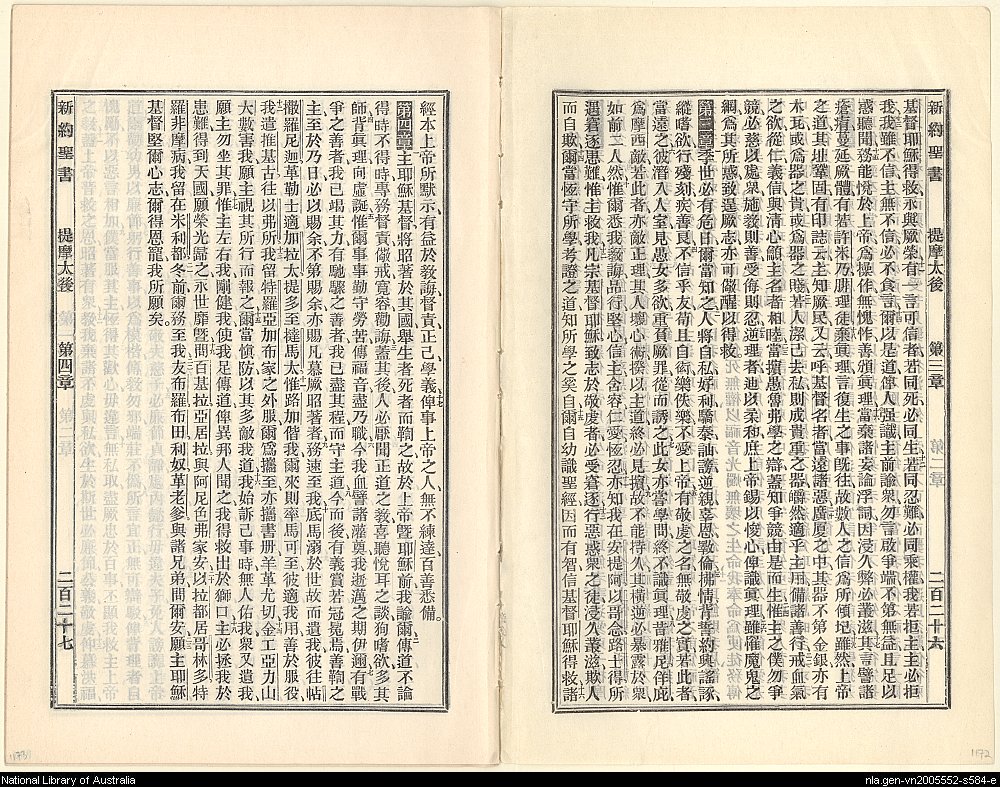 新約聖書　提摩太後　第三章　二百二十六
基督耶穌得救永與厥榮有一言可信者若同死必同生若同忍難必同秉權我若拒主主必拒
我我雖不信主無不信必不食言爾以是道俾人强識主前諭衆勿言啟爭端不第無益且足以
惑聽聞務能悅於上帝爲操作無愧怍善頒眞理當棄諸妄論浮詞因浸久弊必叢滋其言譬諸
瘡痏蔓延厥體有若許米乃腓理徒棄眞理言復生之事旣往故數人之信爲所傾圮雖然上帝
之道其址鞏固有印誌云主知厥民又云呼基督名者當遠諸惡廣厦之中其器不第金銀亦有
木瓦或爲器之貴或爲器之賤若人潔己去私則成貴重之器皭然適乎主用備諸善行戒血氣
之欲從仁義信與淸心籲主名者相睦當擯愚魯弗學之辯蓋知爭競由是而生惟主之僕勿爭
競必慈以處衆施敎則善受侮則忍逆理者迪以柔和庶上帝錫以悛心俾識眞理雖罹魔鬼之
網、爲其所惑致逞厥志亦可儆醒以得救、
第三章季世必有危日爾當知之、人將自私好利驕泰訕謗逆親辜恩斁倫拂情背誓約興謠諑、
縱嗜欲行殘刻疾善良不信乎友苟且自衒樂佚樂不愛上帝有敬虔之名無敬虔之實若此者
當遠之彼潛入人室見愚女多欲重負厥罪從而誘之此女亦嘗學問終不識眞理昔雅尼佯庇
爲摩西敵若此者亦敵正理其人壞心術擯以主道終必見擯故不能持久其橫逆必暴露於衆
如前二人然惟爾悉我敎誨品行居心信主含容仁愛恆忍亦知我在安提阿以哥念路士得所
遇窘逐患難惟主救我凡宗基督耶穌致志於敬虔者必受窘逐行惡惑衆之徒浸久叢滋欺人
而自欺爾當恆守所學考證之道知所學之矣自爾自幼識聖經因而有智信基督耶穌得救諸
經本上帝所默示有益於敎誨督責正己學義俾事上帝之人無不練達百善悉備。
第四章主耶穌基督將昭著於其國舉生者死者而鞫之故於上帝曁耶穌前我諭爾傳道不論
得時不得時專務督責儆戒寬容勸誨蓋其後人必厭聞正道之敎喜聽悅耳之談狥嗜欲多其
師背眞理向虛誕惟爾當事事勤守勞苦傳福音盡乃職今我血譬諸灌奠我逝之期伊邇有戰
爭之善者我已竭其力有馳驟之善者我已盡其程而守主道今而後有義賞若冠冕爲善鞫之
主至於乃日必以賜余不第賜余亦賜凡慕厥昭著者務速至我底馬溺於世故而遺我彼往帖
撒羅尼迦革勒士適加拉太提多至撻馬太惟路加偕我爾來則率馬可至彼適我用善於服役
我遣推基古往以弗所我留特羅亞加布家之外服爾爲攜至亦攜書册羊革尤切金工亞力山
大數害我願主視其所行而報之爾當愼防以其多敵我道我始訴己事時無人佑我衆又遺我
願主勿坐其罪惟主左右我剛健我使我足傳道俾異邦人聞之我得救出於獅口主必拯我於
患難得到天國願榮光歸之永世靡曁問百基拉亞居拉與阿尼色弗家安以拉都居哥林多特
羅非摩病我留在米利都冬前爾務至我友布羅布田利奴革老爹與諸兄弟間爾安願主耶穌
基督堅爾心志爾得恩寵我所願矣。
新約聖書　提摩太後　第四章　二百二十七
1172
National Library of Australia
nla.gen-vn2005552-s584-e